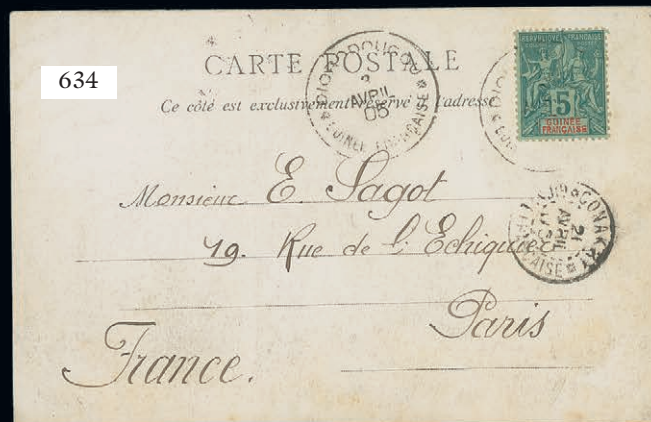 634
CARTE POSTALE
Ce côté est exclusivement réservé à l'adresse
AVRIL
05
GUINÉE FRANÇAISE
RÉPUBLIQUE FRANÇAISE
5
GUINÉE
FRANÇAISE
CONAKRY
21
AVRIL
05
Monsieur E. Sagot
19. Rue de l'Echiquier
Paris
France.